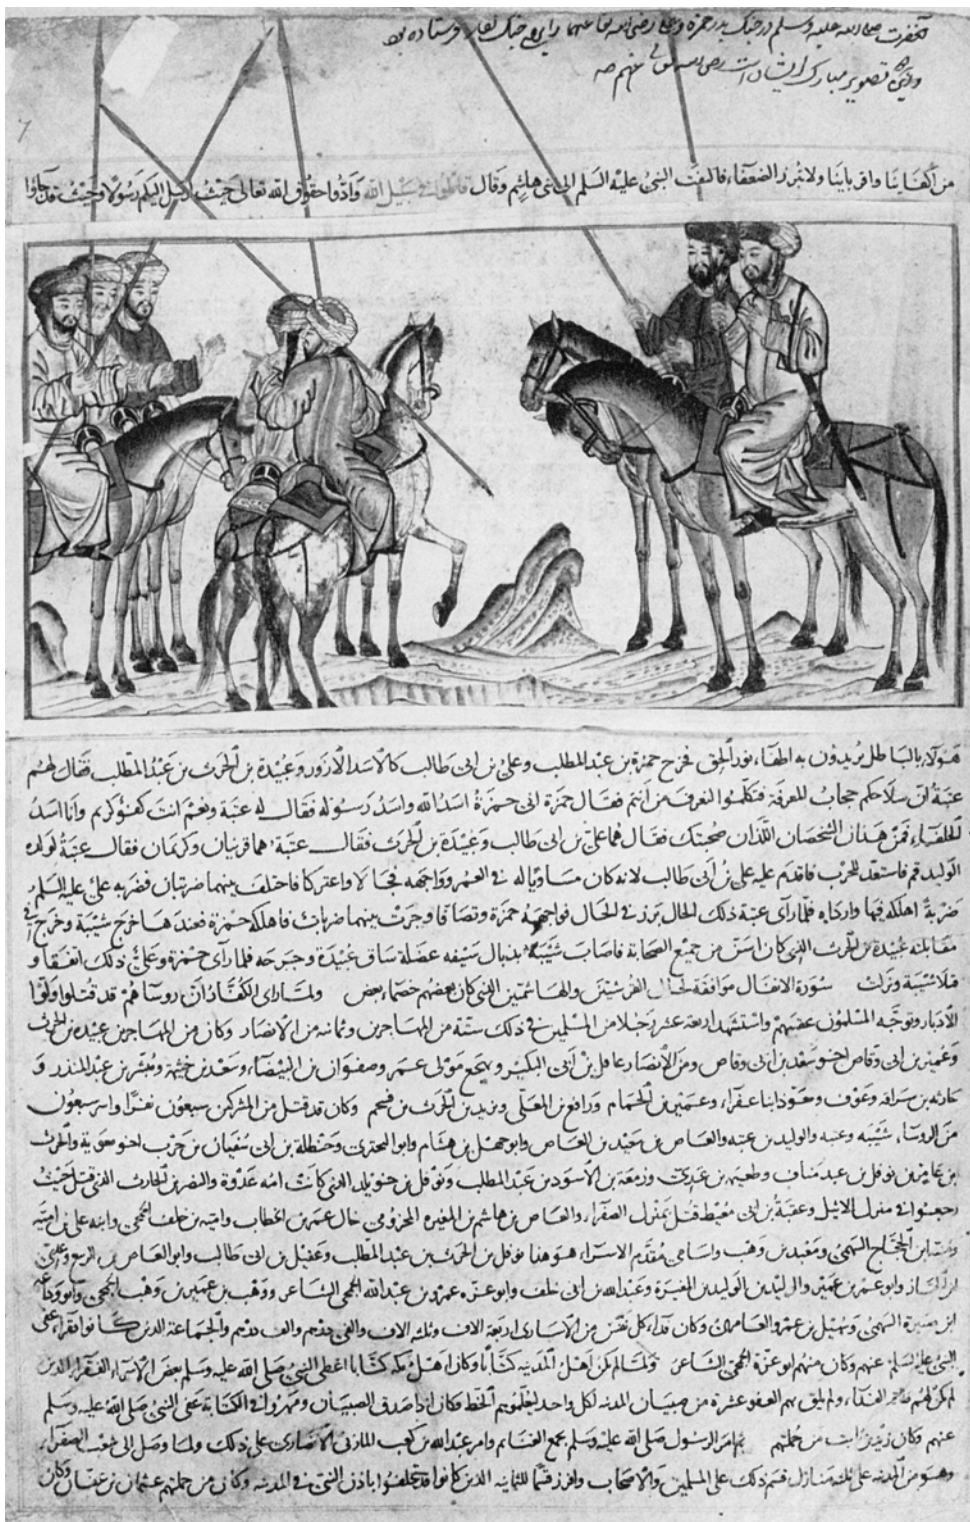 آنحضرت صلی الله علیه وسلم در جنگ بدر حمزه و علی رضی الله تعالی عنهما را برای جنگ کفار فرستاده بود
و این تصویر مبارک ایشان است رضی الله تعالی عنهم
من اكفاينا واقرباينا ولا نبرز الضعفاء فالتفت النبي عليه السلم الى بني هاشم وقال قاتلوا في سبيل الله وادوا حقوق الله تعالى حيث ارسل اليكم رسولا وحيث قد جاؤا
هؤلاء بالباطل يريدون به اطفاء نور الحق فخرج حمزة بن عبد المطلب وعلي بن ابي طالب كالاسد الازور وعبيدة بن الحرث بن عبد المطلب فقال لهم
عتبة ان سلاحكم حجاب المعرفة فتكلموا لنعرفه من انتم فقال حمزة اني حمزة اسد الله واسد رسوله فقال له عتبة ونعم انت كفؤ كريم وانا اسد
الحلفاء فمن هذان الشخصان اللذان صحبتك فقال هما علي بن ابي طالب وعبيدة بن الحرث فقال عتبة هما قرنيان وكريمان فقال عتبة لولده
الوليد قم فاستعد للحرب فاقدم عليه علي بن ابي طالب لانه كان مساويا له في العمر وواجهه فجالا واعتركا فاختلف بينهما ضربتان فضربه علي عليه السلم
ضربة اهلكه فيها وارداه فلما راى عتبة ذلك الحال برز في الحال فواجهه حمزة وتصافا وجرت بينهما ضربات فاهلكه حمزة فعندها خرج شيبة وخرج في
مقابلته عبيدة بن الحرث الذي كان اسن من جميع الصحابة فاصاب شيبة بذبال سيفه عضلة ساق عبيدة وجرحه فلما راى حمزة وعلي ذلك اتفقا و
قتلا شيبة ونزلت سورة الانفال موافقة لحال القرشيين والهاشميين الذي كان بعضهم خصماء بعض ولما راى الكفار ان روسآهم قد قتلوا ولوا
الادبار وتوجه المسلمون عقبهم واستشهد اربعة عشر رجلا من المسلمين في ذلك ستة من المهاجرين وثمانه من الانصار وكان من المهاجرين عبيدة بن الحرث
وعمير بن ابي وقاص اخو سعد بن ابي وقاص ومن الانصار عاقل بن ابي البكير ومهجع مولى عمر وصفوان بن البيضاء وسعد بن خيثمه ومبشر بن عبد المنذر و
حارثه بن سراقه وعوف ومعوذ ابنا عفراء وعمير بن الحمام ورافع بن المعلى ويزيد بن الحرث بن فسحم وكان قد قتل من المشركين سبعون نفرا واسر سبعون
من الروساء شيبه وعتبه والوليد بن عتبه والعاص بن سعيد بن العاص وابو جهل بن هشام وابو البختري وحنظله بن ابي سفيان بن حرب اخو معوية والحرث
بن عامر بن نوفل بن عبد مناف وطعيمه بن عدي وزمعة بن الاسود بن عبد المطلب ونوفل بن خويلد الذي كانت امه عدوة والنضر بن الحارث الذي قتل حيث
رجعوا في منزل الاثيل وعقبة بن ابي معيط قتل بمنزل الصفراء والعاص بن هاشم بن المغيره المخزومي خال عمر بن الخطاب واميه بن خلف الجمحي وابنه علي بن اميه
ومنبه ابن الحجاج السهمي ومعبد بن وهب واسامي مقدم الاسراء هو هذا نوفل بن الحرث بن عبد المطلب وعقيل بن ابي طالب وابو العاص بن الربيع وعدي
ابن الخيار وابو عزيز بن عمير والوليد بن الوليد بن المغيرة وعبد الله بن ابي خلف وابو عزه عمرو بن عبد الله الجمحي الشاعر ووهب بن عمير بن وهب الجمحي وابو وداعه
ابن صبيرة السهمي وسهيل بن عمرو العامري وكان فداء كل نفس من الاسارى اربعة الاف وثلثه الاف والفي درهم والف درهم والجماعة الذين كانوا فقراء عفى
النبي عليه السلم عنهم وكان منهم ابو عزة الجمحي الشاعر ولما لم يكن اهل المدينه كتابا وكان اهل مكه كتابا اعطى النبي صلى الله عليه وسلم بعض الاسراء الفقراء الذين
لم يكن لهم طاقة الفداء ولم يلق بهم العفو عشرة من صبيان المدينه لكل واحد ليعلموهم الخط فكان اذا صدق الصبيان ومهروا في الكتابة عفى النبي صلى الله عليه وسلم
عنهم وكان زيد بن ثابت من جملتهم ثم امر الرسول صلى الله عليه وسلم بجمع الغنايم وامر عبد الله بن كعب المازني الانصاري على ذلك ولما وصل الى شعب الصفراء
وهو من المدينه على ثلثه منازل قسم ذلك على المسلمين والاصحاب وافرز قسما للثمانيه الذين كانوا قد تخلفوا باذن النبي في المدينه وكان من جملتهم عثمان بن عفان وكان